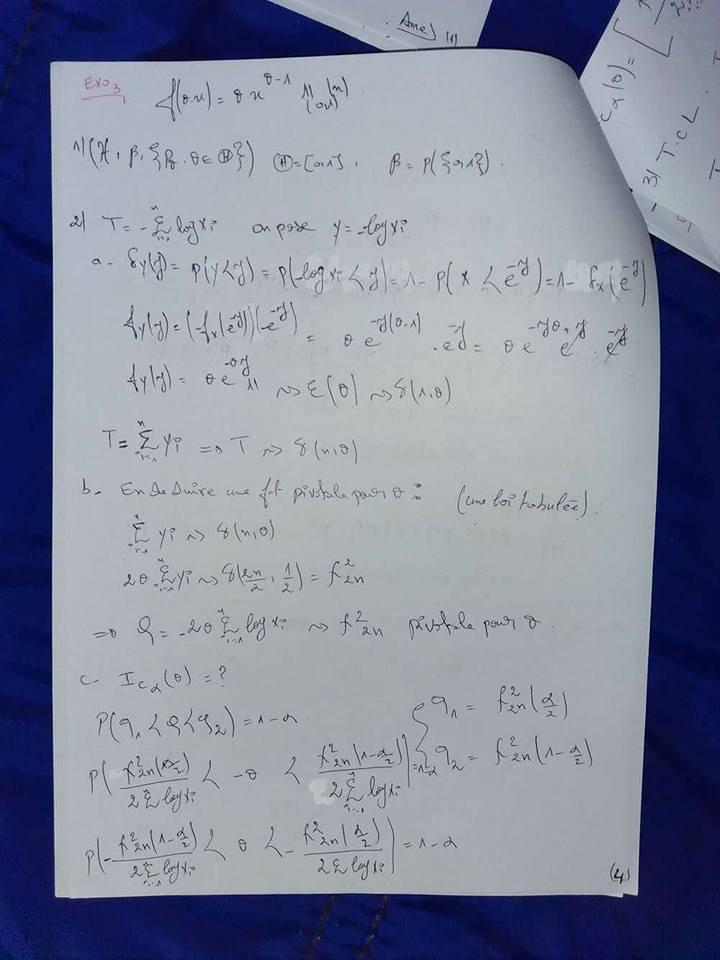 Ame) (1)
C_α(θ) = [
2Σ
3) T.C.L
Exo3
f(θ.x) = θ x^{θ-1} 11_{(0,1)}(x)
1) (H, β, {P_θ. θ ∈ Ⓗ}) Ⓗ = [0 1], β = P({0,1}).
2) T = -Σ_{i=1}^{n} log xi on pose y = -log xi
a - F_Y(y) = P(Y<y) = P(-log xi < y) = 1 - P(X < e^{-y}) = 1 - F_X(e^{-y})
f_Y(y) = (-f_X(e^{-y}))(-e^{-y}) = θ e^{-y(θ-1)} . e^{-y} = θ e^{-yθ+y} . e^{-y}
f_Y(y) = θ e^{-θy} 11 ~> ε(θ) ~> γ(1,θ)
T = Σ_{i=1}^{n} yi => T ~> γ(n,θ)
b - En deduire une fct pivotale pour θ : (une loi tabulée).
Σ_{i=1}^{n} yi ~> γ(n,θ)
2θ Σ_{i=1}^{n} yi ~> γ(2n/2, 1/2) = χ²_{2n}
=> Q = -2θ Σ_{i=1}^{n} log xi ~> χ²_{2n} pivotale pour θ.
c - I_{Cα}(θ) = ?
P(q_1 < Q < q_2) = 1-α. { q_1 = χ²_{2n}(α/2)
P( χ²_{2n}(α/2) / 2Σ log xi < -θ < χ²_{2n}(1-α/2) / 2Σ_{i=1}^{n} log xi ) = 1-α q_2 = χ²_{2n}(1-α/2)
P( - χ²_{2n}(1-α/2) / 2Σ_{i=1}^{n} log xi < θ < - χ²_{2n}(α/2) / 2Σ log xi ) = 1-α
(4)